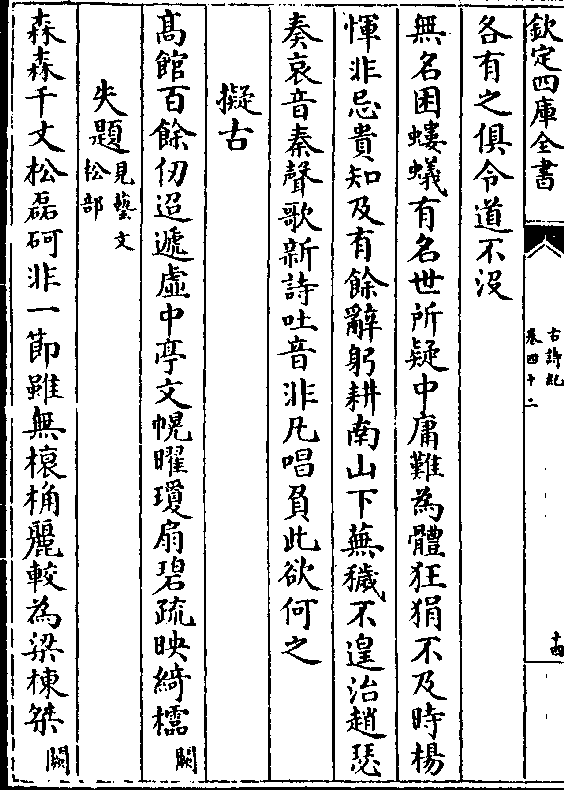 欽定四庫全書
古詩紀
卷四十二
十四
各有之俱令道不没
無名困螻蟻有名世所疑中庸難為體狂狷不及時楊
惲非忌貴知及有餘辭躬耕南山下蕪穢不遑治趙瑟
奏哀音秦聲歌新詩吐音非凡唱負此欲何之
擬古
高館百餘仞迢遞虛中亭文幌曜瓊扇碧疏映綺櫺闕
失題見藝文松部
森森千丈松磊砢非一節雖無榱桷麗較為梁棟桀闕